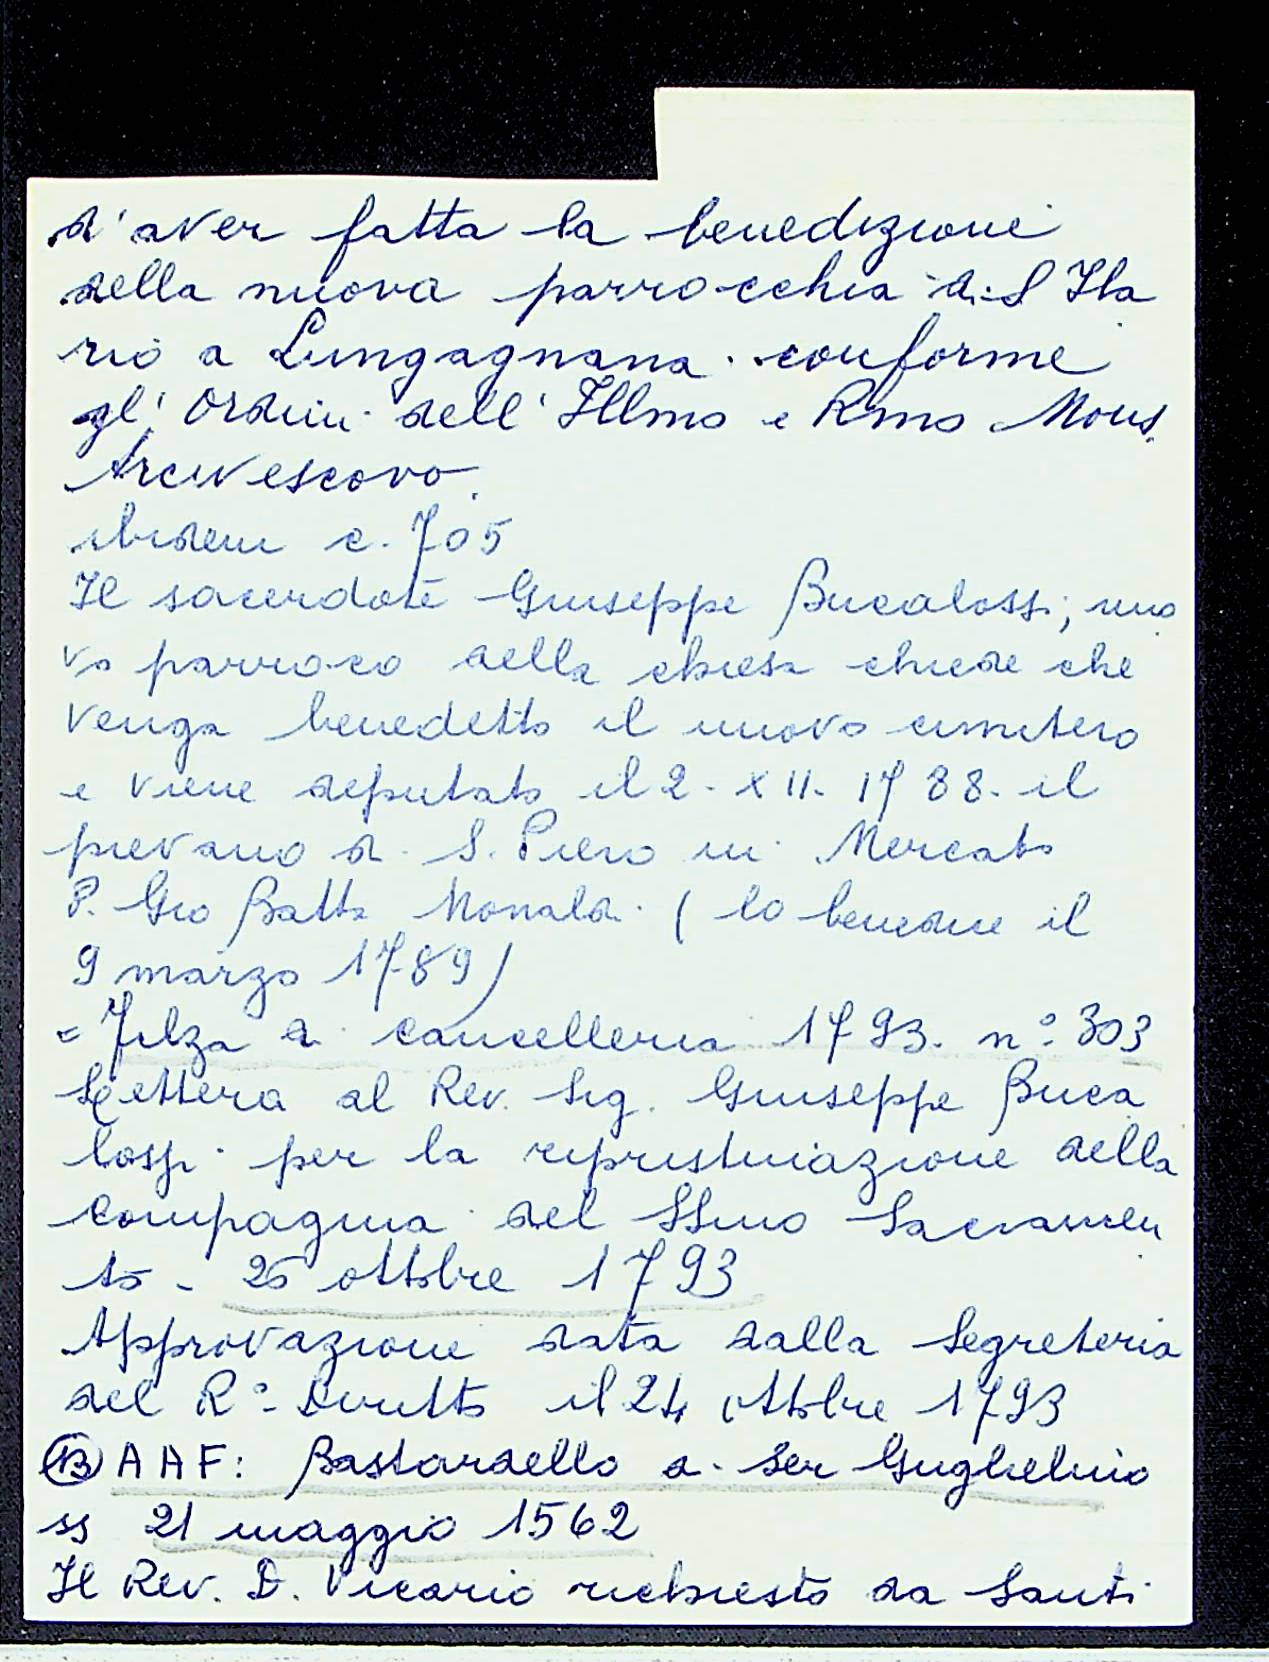 d'aver fatta la benedizione
della nuova parrocchia di S Ila
rio a Lungagnana conforme
gl' Ordini dell' Illmo e Rmo Mons.
Arcivescovo.
ibidem c. 705
Il sacerdote Giuseppe Bucalossi, nuo
vo parroco della chiesa chiede che
venga benedetto il nuovo cimitero
e viene deputato il 2. XII. 1788. il
pievano di S. Piero in Mercato
P. Gio Batta Monaldi (lo benedice il
9 marzo 1789)
= Filza di cancelleria 1793. n° 303
Lettera al Rev. Sig. Giuseppe Buca
lossi per la ripristinazione della
Compagnia del SSmo Sacramen
to - 26 ottobre 1793
Approvazione data dalla Segreteria
del R° Diritto il 24 ottobre 1793
(13) A A F: Bastardello di Ser Guglielmo
ss 21 maggio 1562
Il Rev. D. Vicario richiesto da Santi